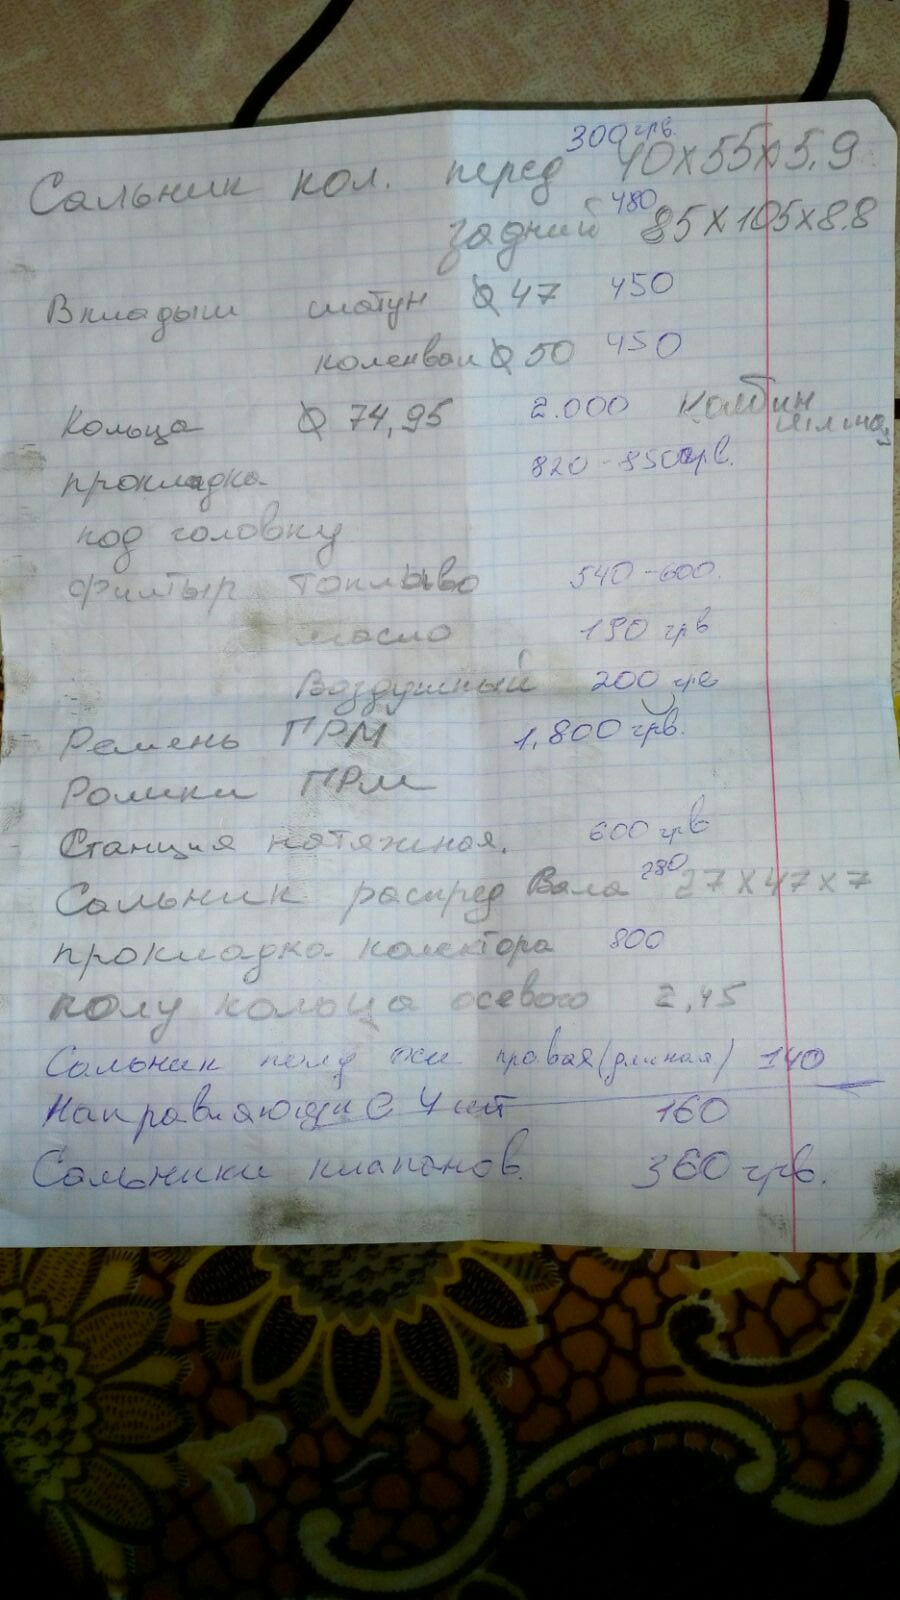 300 грв.
Сальник кол. перед 40х55х5.9
задний 480 85х105х8.8
Вкладыш шатун Ø 47 450
коленвал Ø 50 450
Кольца Ø 74,95 2.000 Комбин
820-850грв.
прокладка
под головку
Фильтыр Топлыво 540-600.
масло 190 грв
Воздушный 200 грв
Ремень ГРМ 1,800 грв.
Ролики ГРМ
Станция натяжная. 600 грв
Сальник распред Вала 280 27х47х7
прокладка колектора 800
полу кольца осевого 2,45
Сальник полу оси правая (длиная) 140
Направляющие 4 шт 160
Сальники клапанов. 360 грв.